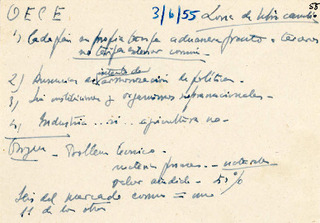 OECE 3/6/55 Zona de libre cambio 58
1) Cada país su propia tarifa aduanera frente a terceros
no tarifa exterior común.—
2) Ausencia de intento de armonización de política.—
3) Sin instituciones y organismos supranacionales.—
4) Industria ... sí .. agricultura no.—
— Problema técnico.—
materias primas.—
valor añadido.— 50%
Seis del mercado común = uno
11 de los otros